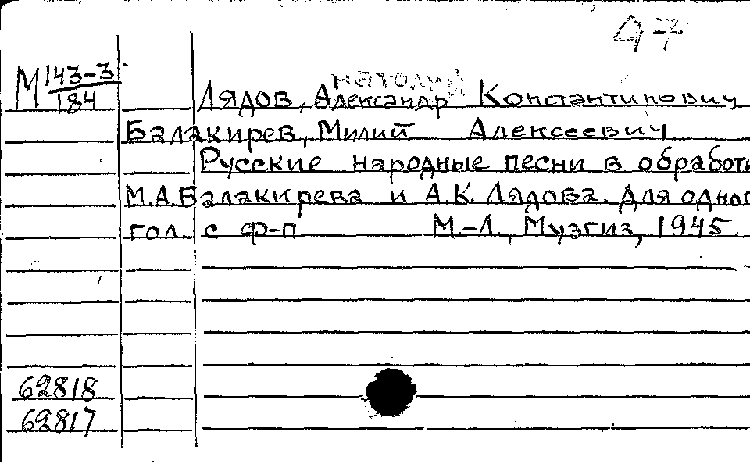 Д-7
М 143-3/184
Лядов, Александр Константинович
Балакирев, Милий Алексеевич
Русские народные песни в обработ
М.А.Балакирева и А.К. Лядова. Для одног
гол. с ф-п М.-Л., Музгиз, 1945.
62818
62817